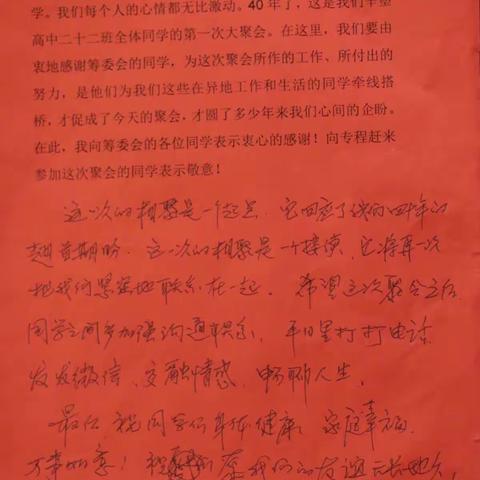 学。我们每个人的心情都无比激动。40 年了，这是我们
高中二十二班全体同学的第一次大聚会。在这里，我们要由
衷地感谢筹委会的同学，为这次聚会所作的工作、所付出的
努力，是他们为我们这些在异地工作和生活的同学牵线搭
桥，才促成了今天的聚会，才圆了多少年来我们心间的企盼。
在此，我向筹委会的各位同学表示衷心的感谢！向专程赶来
参加这次聚会的同学表示敬意！
这一次的相聚是一个起点，它回应了我们四十年的
翘首期盼，这一次的相聚是一个接续，它将再一次
把我们紧密地联系在一起。希望这次聚会之后
同学之间多加强沟通联系，平日里打打电话
发发微信，交融情感，畅聊人生。
最后祝同学们身体健康，家庭幸福，
万事如意！祝 我们的友谊天长地久，